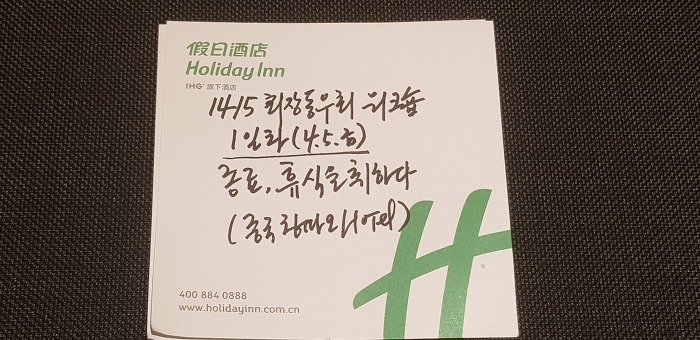 假日酒店
Holiday Inn
IHG® 旗下酒店
1415 회장동우회 워크숍
1일차(4.5.금)
종료, 휴식을 취하다
(중국 칭따오
®
400 884 0888
www.holidayinn.com.cn